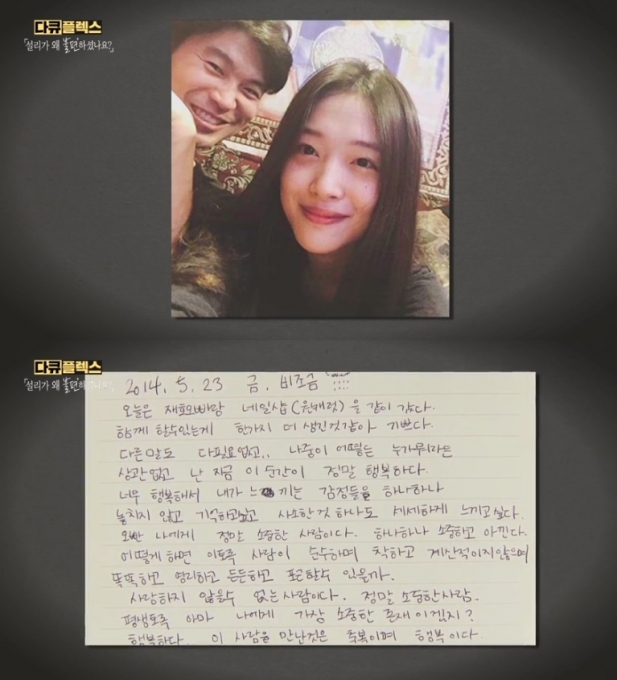 다큐플렉스
「설리가 왜 불편하셨나요?」
다큐플렉스
「설리가 왜 불편하셨나요?」
2014. 5. 23 금. 비조금
오늘은 재호오빠랑 네일샵(유캐럿)을 같이 갔다.
함께 할수있는게 한가지 더 생긴것같아 기쁘다.
다른말도 다필요없고.. 나중이 어떻든 누가뭐라든
상관없고 난 지금 이 순간이 정말 행복하다.
너무 행복해서 내가 느끼는 감정들을 하나하나
놓치지 않고 기억하고싶고 사소한것 하나도 세세하게 느끼고싶다.
오빤 나에게 정말 소중한 사람이다. 하나하나 소중하고 아낀다.
어떻게 하면 이토록 사람이 순수하며 착하고 계산적이지않으며
똑똑하고 영리하고 든든하고 포근할수 있을까.
사랑하지 않을수 없는 사람이다. 정말 소중한사람.
평생토록 아마 나에게 가장 소중한 존재이겠지?
행복하다. 이 사람을 만난것은 축복이며 행복이다.